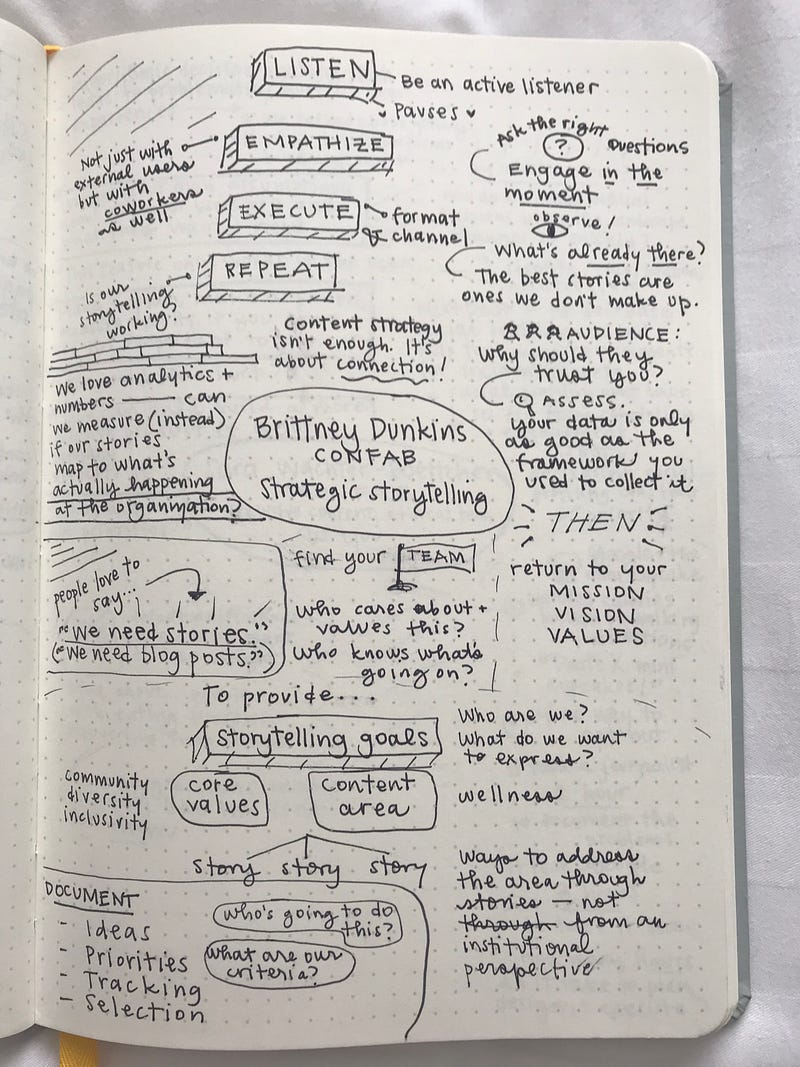 LISTEN
Be an active listener
Pauses
EMPATHIZE
Not just with
external users
but with
coworkers
as well
EXECUTE
format
& channel
REPEAT
Is our
storytelling
working?
Ask the right
? Questions
Engage in the
moment
observe!
What's already there?
The best stories are
ones we don't make up.
Content strategy
isn't enough. It's
about connection!
AUDIENCE:
Why should they
trust you?
ASSESS.
your data is only
as good as the
framework you
used to collect it
We love analytics +
numbers — can
we measure (instead)
if our stories
map to what's
actually happening
at the organization?
Brittney Dunkins
CONFAB
Strategic storytelling
THEN
return to your
MISSION
VISION
VALUES
people love to
say...
"We need stories."
("We need blog posts.")
find your TEAM
Who cares about +
values this?
Who knows what's
going on?
To provide...
Storytelling goals
Who are we?
What do we want
to express?
community
diversity
inclusivity
core
values
content
area
wellness
story story story
Ways to address
the area through
stories — not
through from an
institutional
perspective
DOCUMENT
- Ideas
- Priorities
- Tracking
- Selection
who's going to do
this?
what are our
criteria?